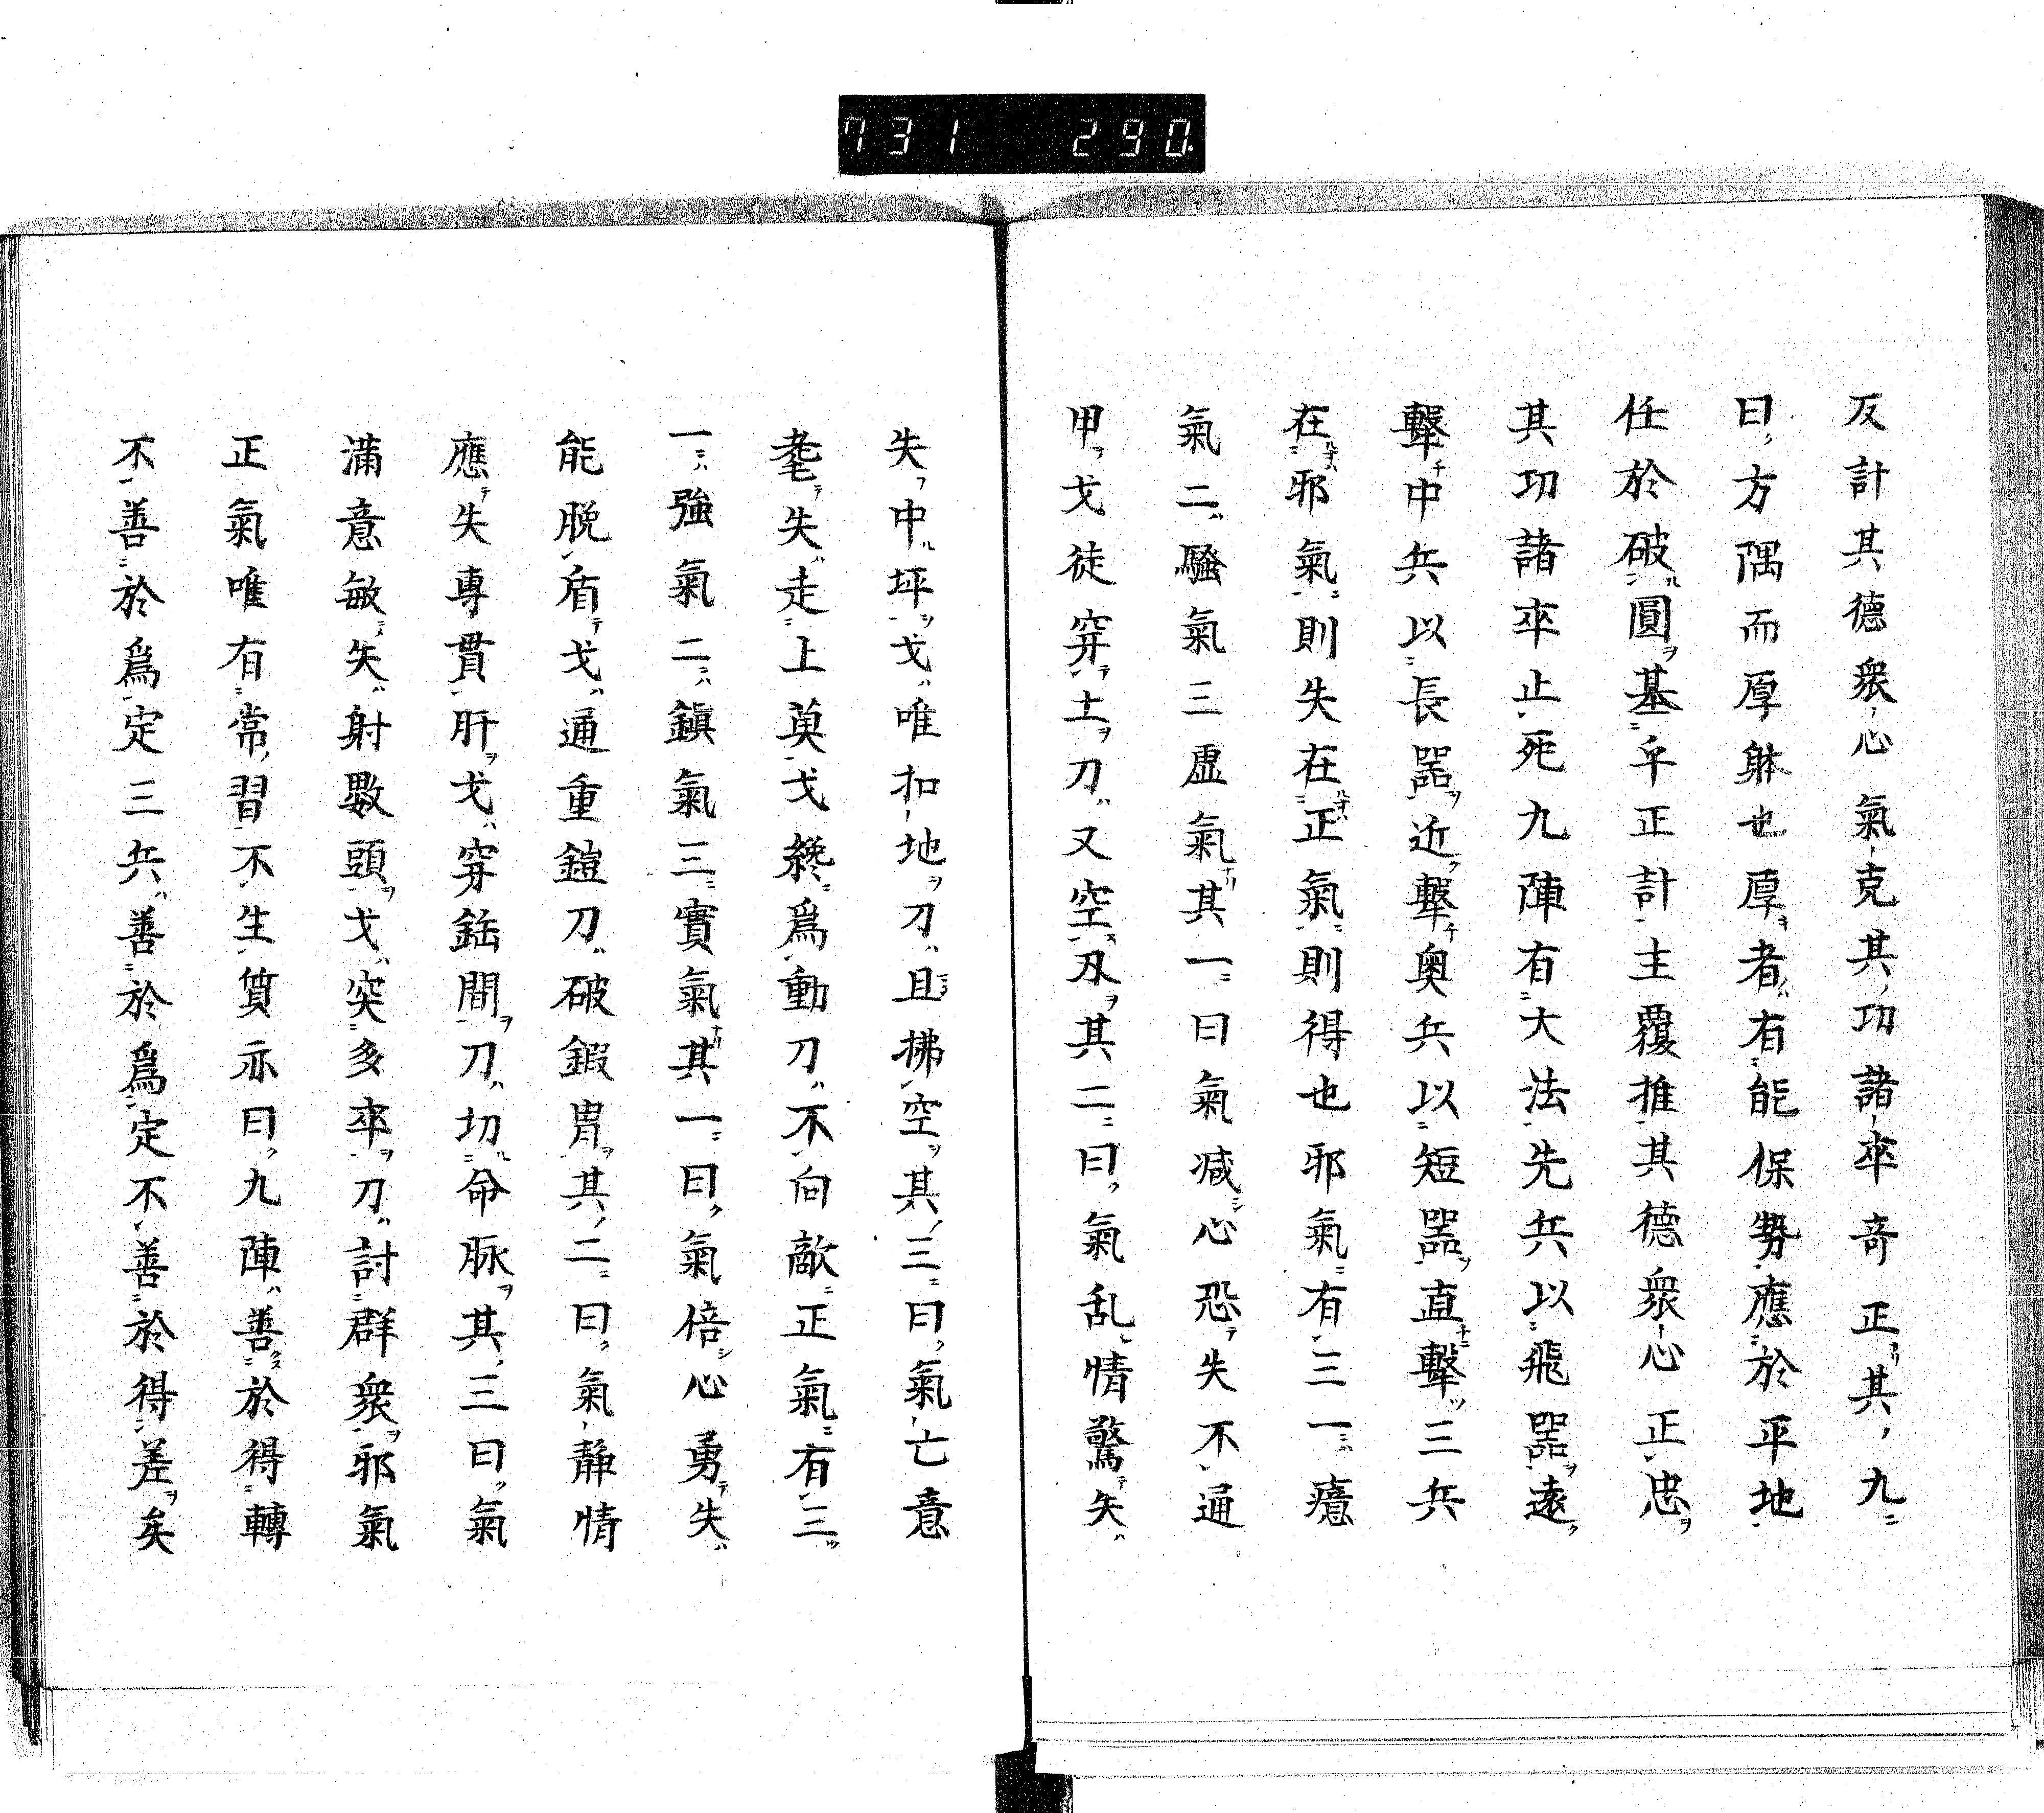 731 290
反計其德衆心氣克其功諸卒奇正其九
曰方隅而厚躰也厚者有能保勢應於平地
任於破圓基平正計主覆推其德衆心正忠
其功諸卒止死九陣有大法先兵以飛噐遠
擊中兵以長噐近擊奥兵以短噐直擊三兵
在邪氣則失在正氣則得也邪氣有三一癔
氣二騷氣三虛氣其一曰氣減心恐失不通
甲戈徒穿土刀又空刄其二曰氣乱情驚矢
失中坪戈唯扣地刀且拂空其三曰氣亡意
耄失走上莫戈纔爲動刀不向敵正氣有三
一強氣二鎮氣三實氣其一曰氣倍心勇失
能脱盾戈通重鎧刀破鍜冑其二曰氣靜情
應失專貫肝戈穿銛間刀切命脉其三曰氣
滿意敏矢射數頭戈突多卒刀討群衆邪氣
正氣唯有常習不生質亦曰九陣善於得轉
不善於爲定三兵善於爲定不善於得差矣